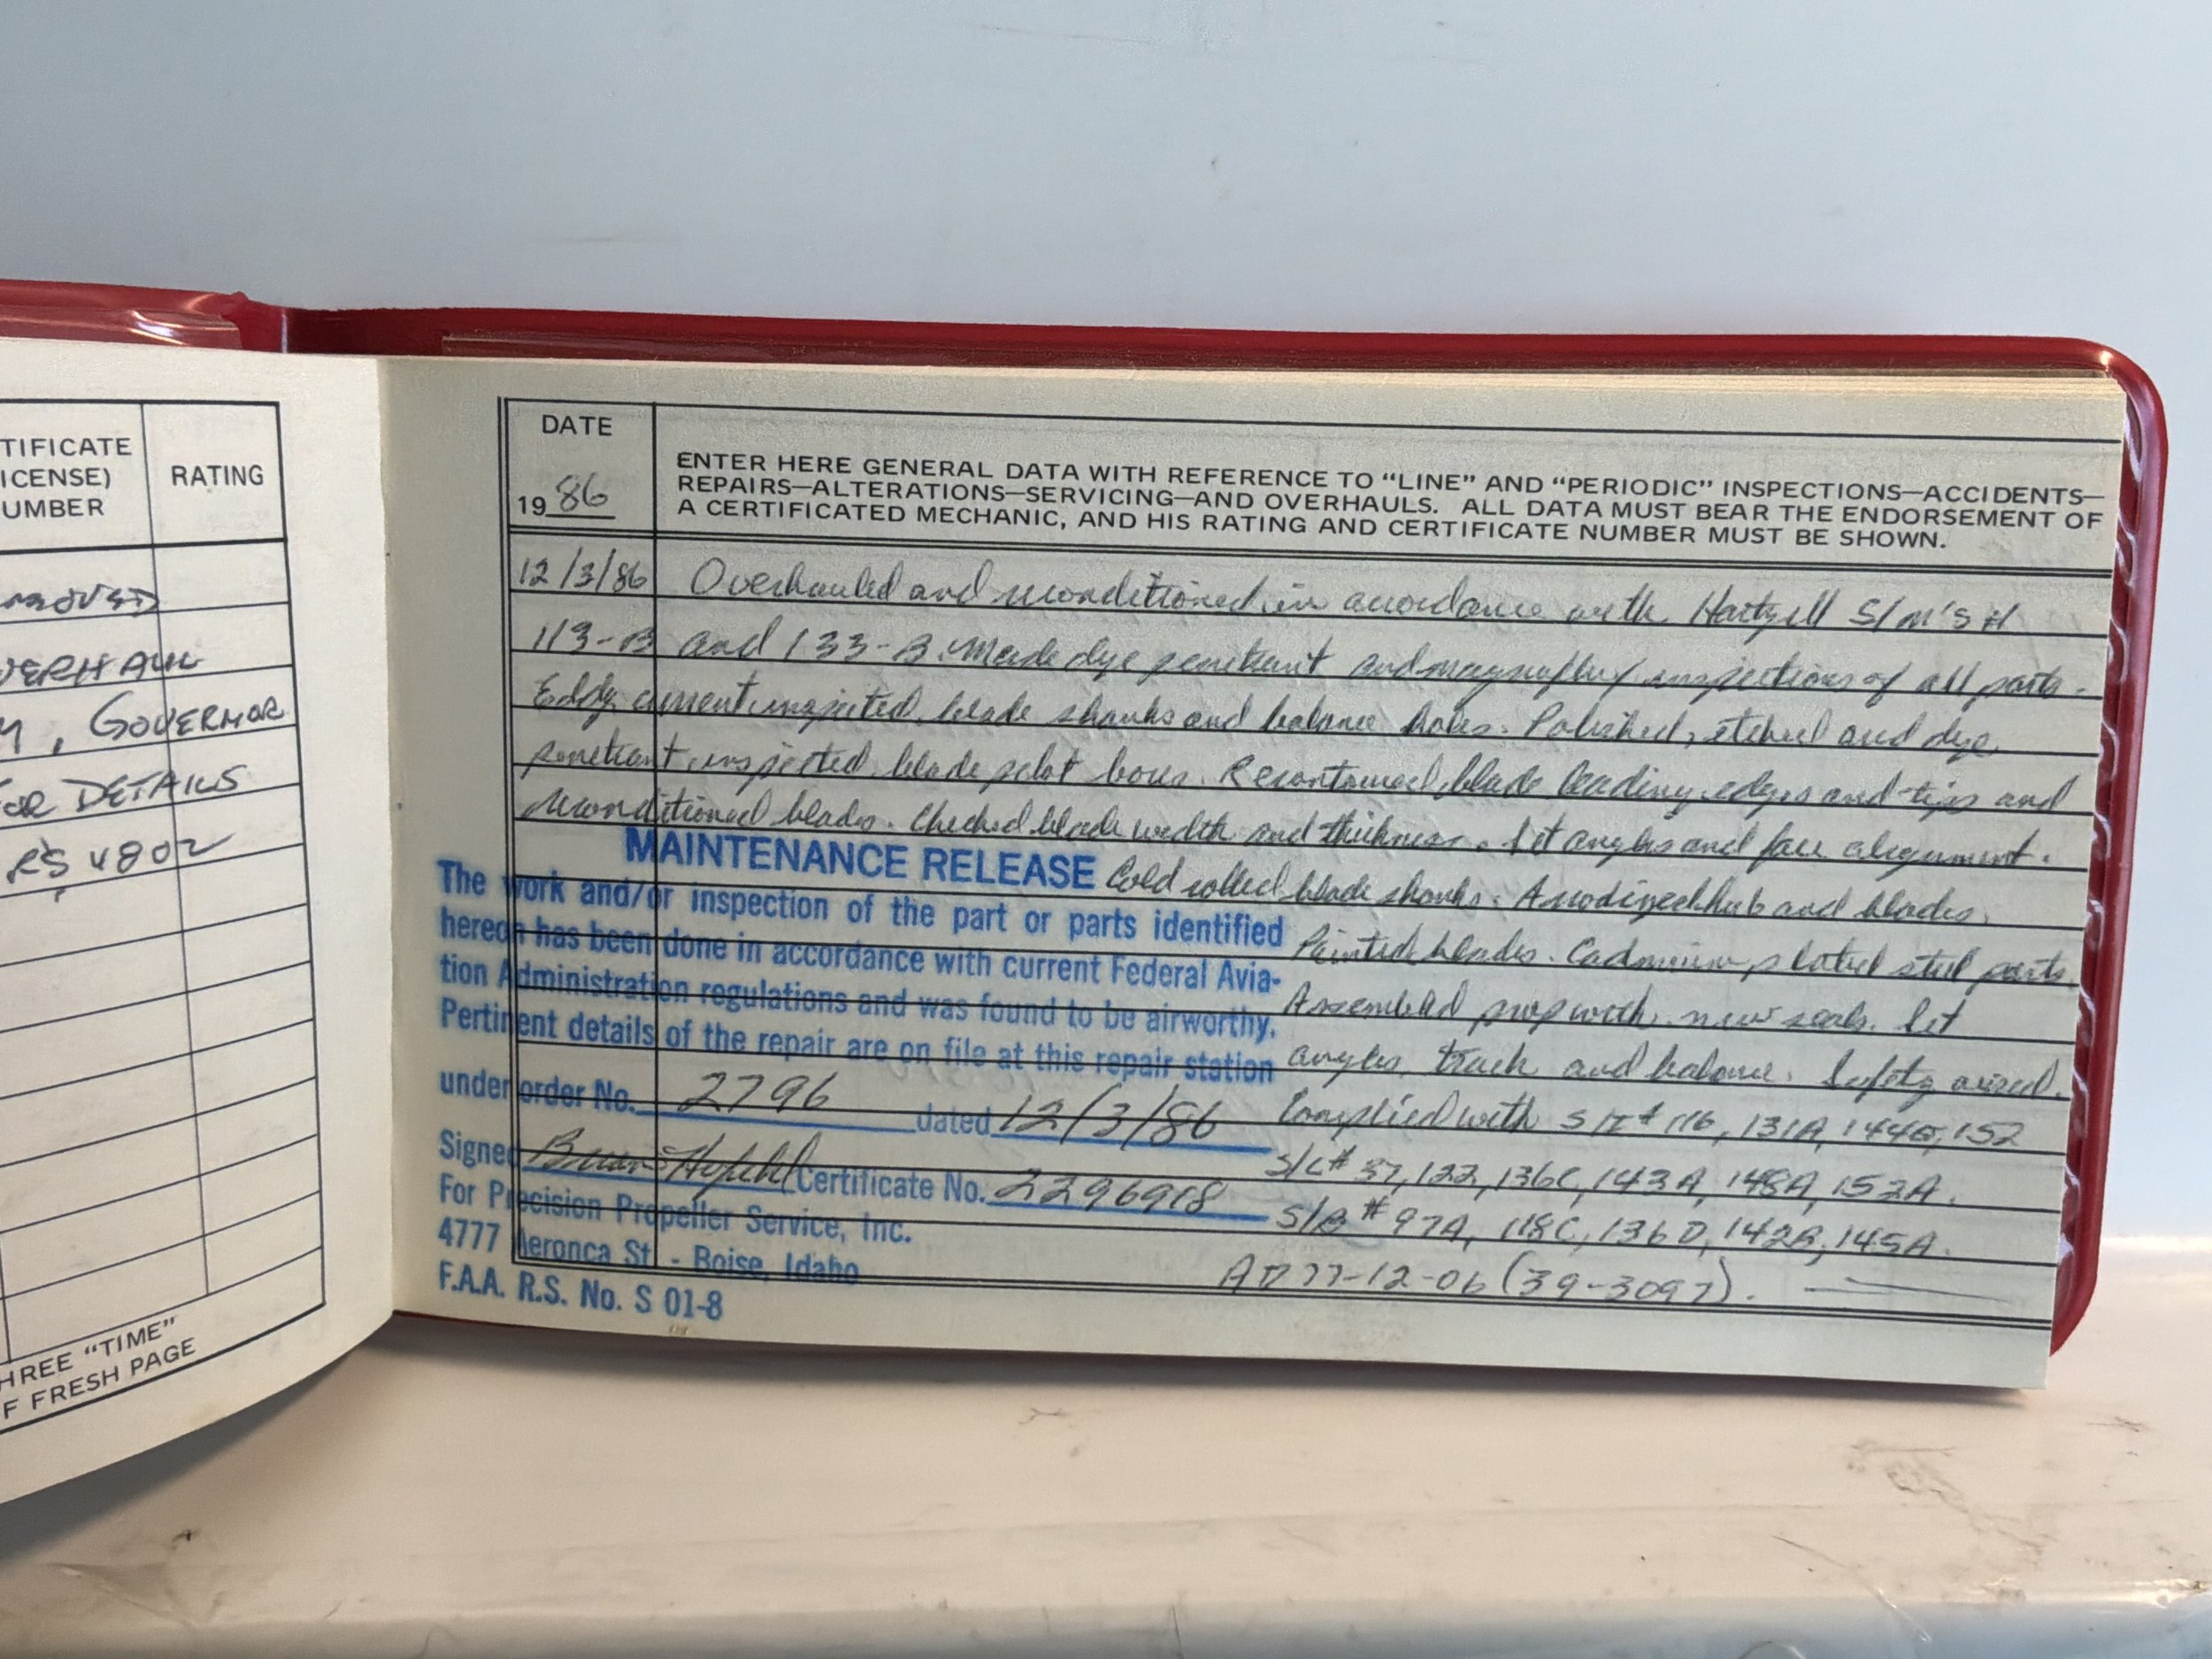 TIFICATE
ICENSE)
UMBER
RATING
VERHAUL
, GOVERNOR
FOR DETAILS
RS 4802
HREE "TIME"
F FRESH PAGE
DATE
19 86
ENTER HERE GENERAL DATA WITH REFERENCE TO "LINE" AND "PERIODIC" INSPECTIONS—ACCIDENTS—
REPAIRS—ALTERATIONS—SERVICING—AND OVERHAULS. ALL DATA MUST BEAR THE ENDORSEMENT OF
A CERTIFICATED MECHANIC, AND HIS RATING AND CERTIFICATE NUMBER MUST BE SHOWN.
12/3/86 Overhauled and reconditioned in accordance with Hartzell S/M's #
113-B and 133-B. Made dye penetrant and magnaflux inspections of all parts.
Eddy current inspected blade shanks and balance holes. Polished, etched and dye
penetrant inspected blade pilot bores. Recontoured blade leading edges and tips and
reconditioned blades. Checked blade width and thickness. Set angles and face alignment.
MAINTENANCE RELEASE
Cold rolled blade shanks. Anodized hub and blades.
Painted blades. Cadmium plated steel parts.
Assembled prop with new seals. Set
angles, track and balance. Safety wired.
Complied with 116, 131A, 152
S/L# 37, 122, 136C, 143A, 148A, 152A.
S/B # 97A, 118C, 136D, 142B, 145A.
AD 77-12-06 (39-3097).
The work and/or inspection of the part or parts identified
hereon has been done in accordance with current Federal Avia-
tion Administration regulations and was found to be airworthy.
Pertinent details of the repair are on file at this repair station
under order No. 2796 dated 12/3/86
Signed Certificate No. 2296918
For Precision Propeller Service, Inc.
4777 Aeronca St. - Boise, Idaho
F.A.A. R.S. No. S 01-8